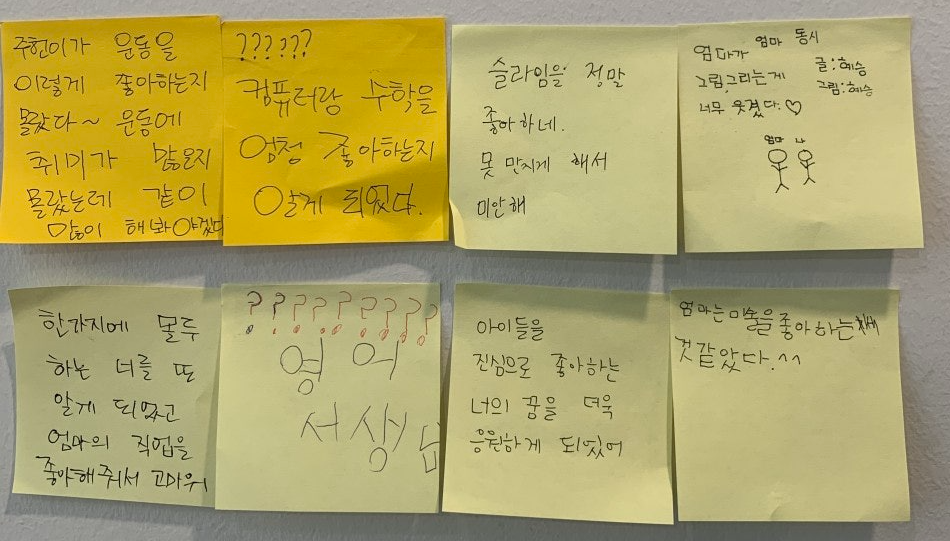 주헌이가 운동을
이렇게 좋아하는지
몰랐다~ 운동에
취미가 많은지
몰랐는데 같이
많이 해봐야겠다
??????
컴퓨터랑 수학을
엄청 좋아하는지
알게 되었다.
슬라임을 정말
좋아하네.
못 만지게 해서
미안해
엄마 동시
엄마가
그림그리는게
너무 웃겼다.♡
글:혜승
그림:혜승
엄마 나
한가지에 몰두
하는 너를 또
알게 되었고
엄마의 직업을
좋아해줘서 고마워
????????
영어
서생님
아이들을
진심으로 좋아하는
너의 꿈을 더욱
응원하게 되었어
엄마는미술을좋아하는
것같았다.^^